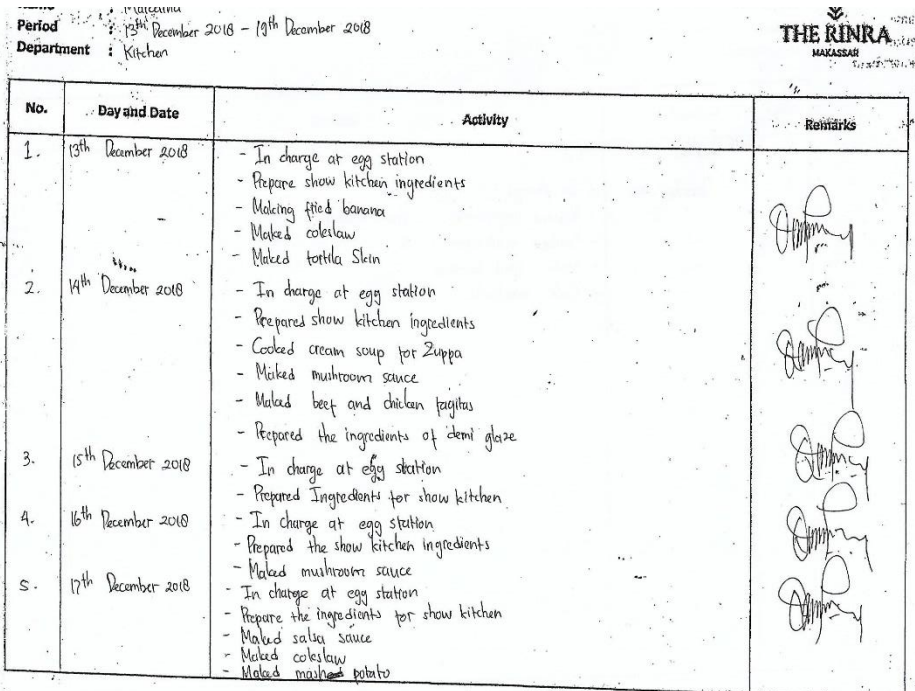 Period : 13th December 2018 - 19th December 2018
Department : Kitchen
THE RINRA
MAKASSAR
No. Day and Date Activity Remarks
1. 13th December 2018 - In charge at egg station
- Prepare show kitchen ingredients
- Making fried banana
- Maked coleslaw
- Maked tortila Skin
2. 14th December 2018 - In charge at egg station
- Prepared show kitchen ingredients
- Cooked cream soup for Zuppa
- Maked mushroom sauce
- Maked beef and chicken fagitas
- Prepared the ingredients of demi glaze
3. 15th December 2018 - In charge at egg station
- Prepared Ingredients for show kitchen
4. 16th December 2018 - In charge at egg station
- Prepared the show kitchen ingredients
- Maked mushroom sauce
5. 17th December 2018 - In charge at egg station
- Prepare the ingredients for show kitchen
- Maked salsa sauce
- Maked coleslaw
- Maked mashed potato